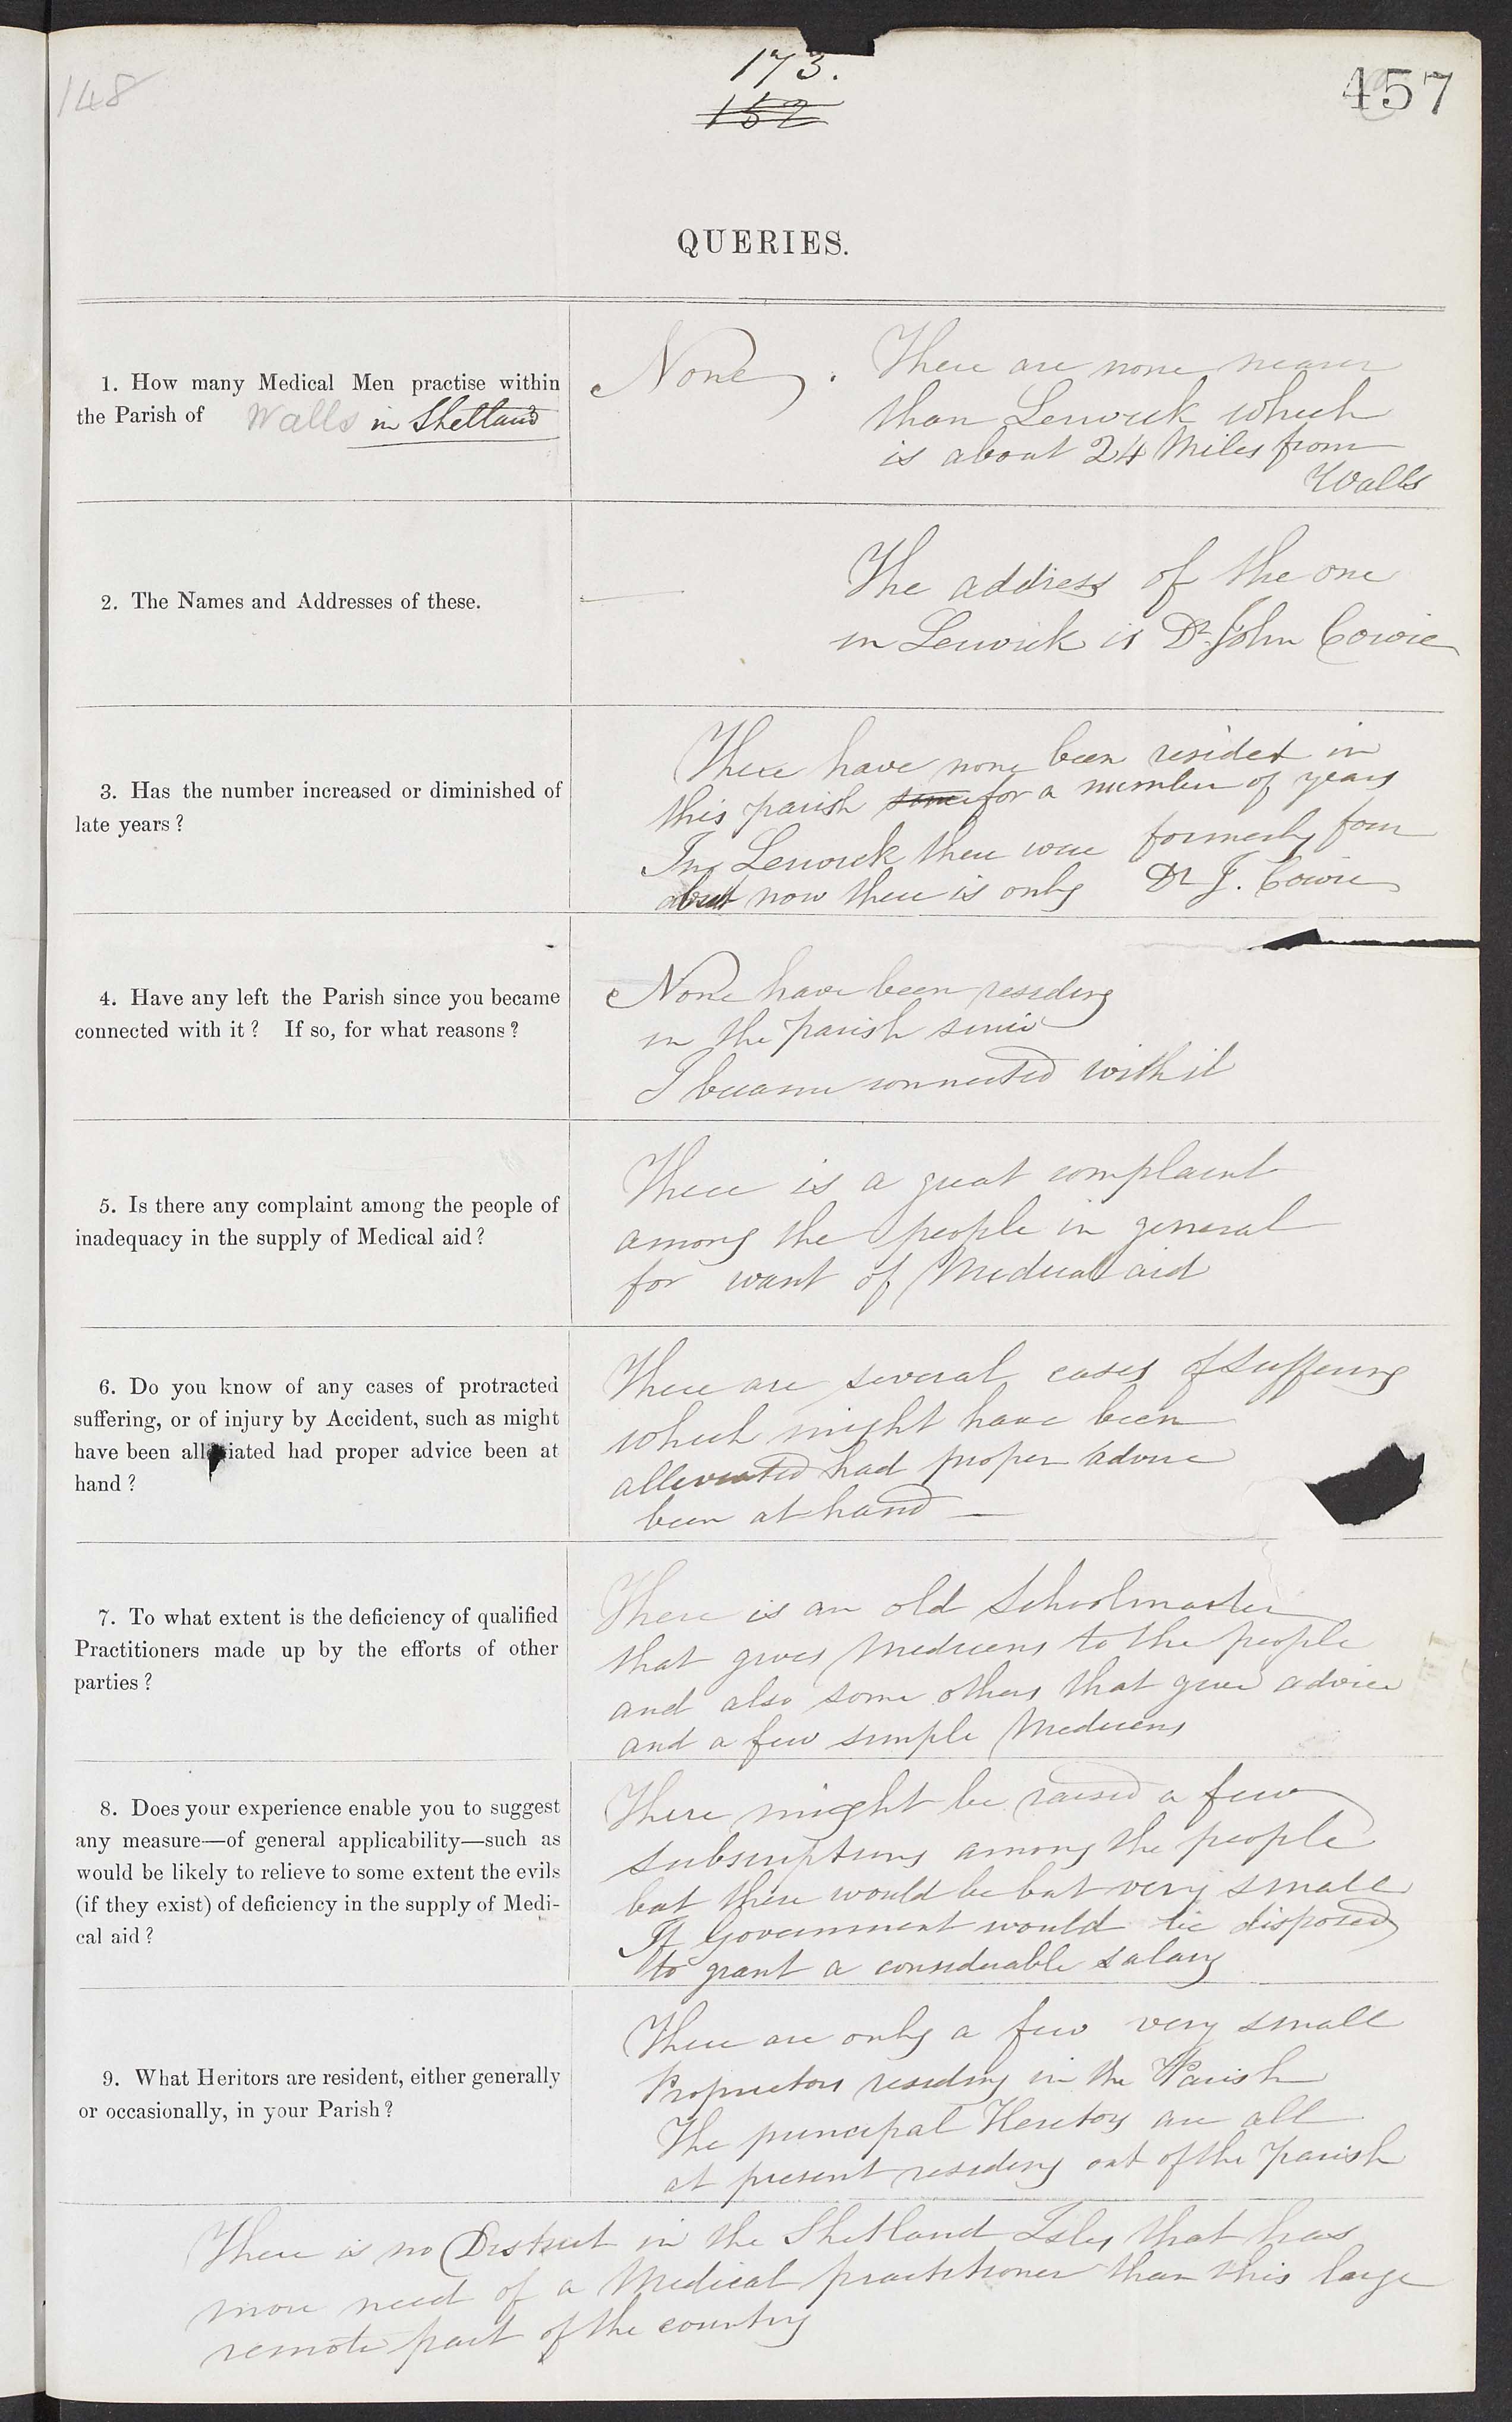 148
173.
152
457
QUERIES.
1. How many Medical Men practise within
the Parish of Walls in Shetland
None. There are none nearer
than Lerwick which
is about 24 Miles from
Walls
2. The Names and Addresses of these.
The address of the one
in Lerwick is Dr. John Cowie
3. Has the number increased or diminished of
late years?
There have none been resided in
this parish since for a number of years
In Lerwick there were formerly four
but now there is only Dr J. Cowie
4. Have any left the Parish since you became
connected with it? If so, for what reasons?
None have been residing
in the parish since
I became connected with it
5. Is there any complaint among the people of
inadequacy in the supply of Medical aid?
There is a great complaint
among the people in general
for want of Medical aid
6. Do you know of any cases of protracted
suffering, or of injury by Accident, such as might
have been alleviated had proper advice been at
hand?
There are several cases of suffering
which might have been
alleviated had proper advice
been at hand —
7. To what extent is the deficiency of qualified
Practitioners made up by the efforts of other
parties?
There is an old Schoolmaster
that gives Medicens to the people
and also some others that give advice
and a few simple Medicens
8. Does your experience enable you to suggest
any measure—of general applicability—such as
would be likely to relieve to some extent the evils
(if they exist) of deficiency in the supply of Medi-
cal aid?
There might be raised a few
subscriptions among the people
but there would be but very small
If Government would be disposed
to grant a considerable salary
9. What Heritors are resident, either generally
or occasionally, in your Parish?
There are only a few very small
Proprietors residing in the Parish
The principal Heretors are all
at present residing out of the parish
There is no District in the Shetland Isles that has
more need of a Medical practitioner than this large
remote part of the country